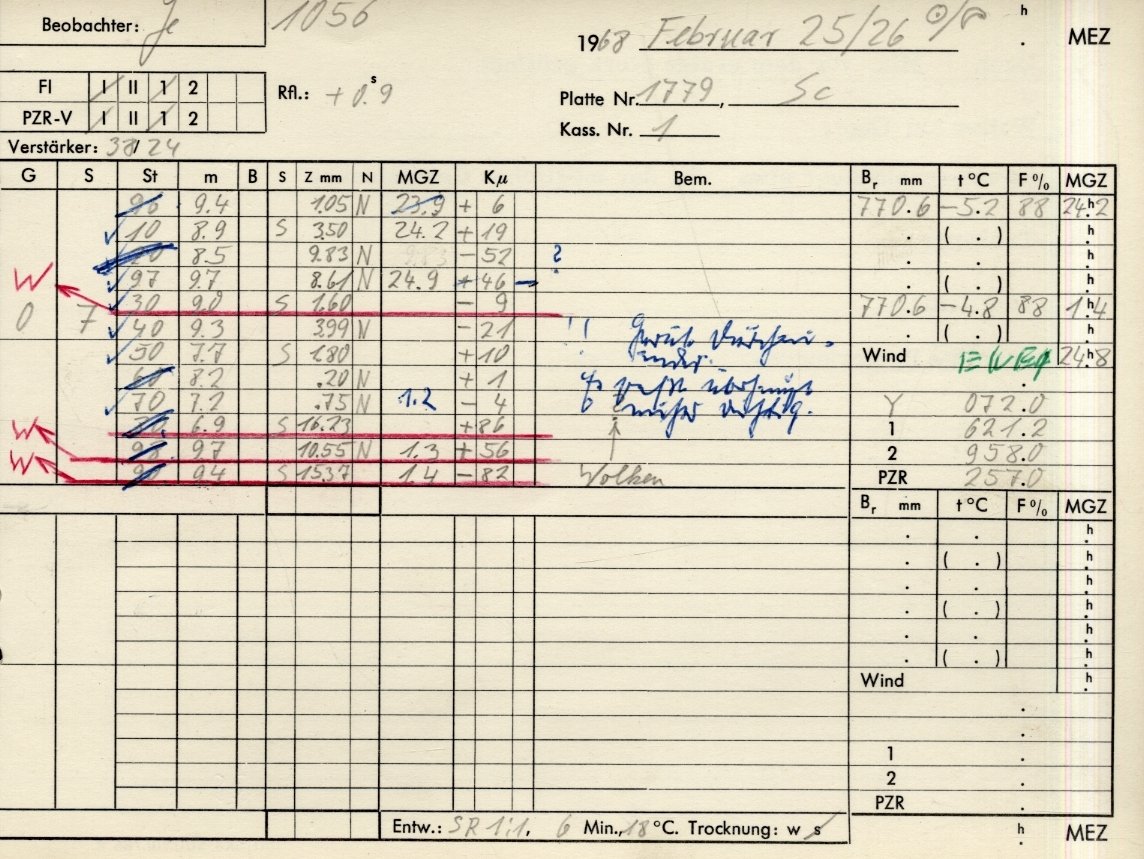 Beobachter: Je 1056
1968 Februar 25/26 h MEZ
FI I II 1 2
PZR-V I II 1 2
Rfl.: +0.s9
Platte Nr. 1779, Sc
Kass. Nr. 1
Verstärker: 38/24
G S St m B S Z mm N MGZ Kμ Bem. Br mm t °C F % MGZ
90 9.4 1.05 N 23.9 + 6 770.6 -5.2 88 24.h2
10 8.9 S 3.50 24.2 + 19 . ( . ) h
8.5 9.83 N - 52 ? . h
W 97 9.7 8.61 N 24.9 + 46 . ( . ) h
0 7 30 9.0 S 1.60 - 9 770.6 -4.8 88 1.h4
40 9.3 3.99 N - 21 . ( . ) h
50 7.7 S 1.80 + 10 Wind 24.h8
60 8.2 .20 N + 1
70 7.2 .75 N 1.2 - 4 Y 072.0
W 6.9 S 16.23 + 86 1 621.2
W 98 9.7 10.55 N 1.3 + 56 2 958.0
90 9.4 S 15.37 1.4 - 82 Wolken PZR 257.0
Br mm t °C F % MGZ
. h
. ( . ) h
. h
. ( . ) h
. h
. ( . ) h
Wind . h
.
.
1 .
2 .
PZR .
Entw.: SR 1:1, 6 Min., 18 °C. Trocknung: w s h MEZ